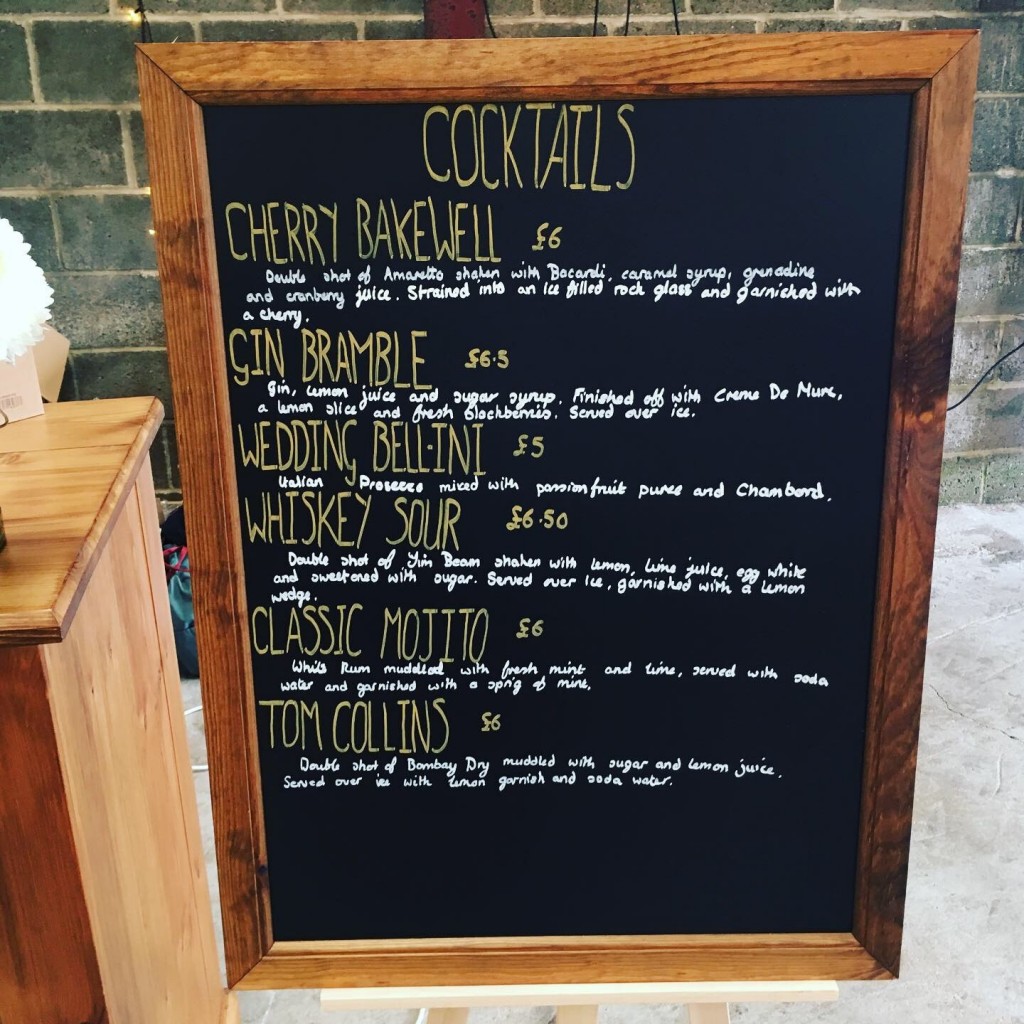 COCKTAILS
CHERRY BAKEWELL £6
Double shot of Amaretto shaken with Bacardi, caramel syrup, grenadine
and cranberry juice. Strained into an ice filled rock glass and garnished with
a cherry.
GIN BRAMBLE £6.5
Gin, Lemon juice and sugar syrup. Finished off with Creme De Mure,
a lemon slice and fresh blackberries. Served over ice.
WEDDING BELL-INI £5
Italian Prosecco mixed with passionfruit puree and Chambord.
WHISKEY SOUR £6.50
Double shot of Jim Beam shaken with lemon, lime juice, egg white
and sweetened with sugar. Served over Ice, garnished with a lemon
wedge.
CLASSIC MOJITO £6
White Rum muddled with fresh mint and lime, served with soda
water and garnished with a sprig of mint.
TOM COLLINS £6
Double shot of Bombay Dry muddled with sugar and lemon juice.
Served over ice with lemon garnish and soda water.